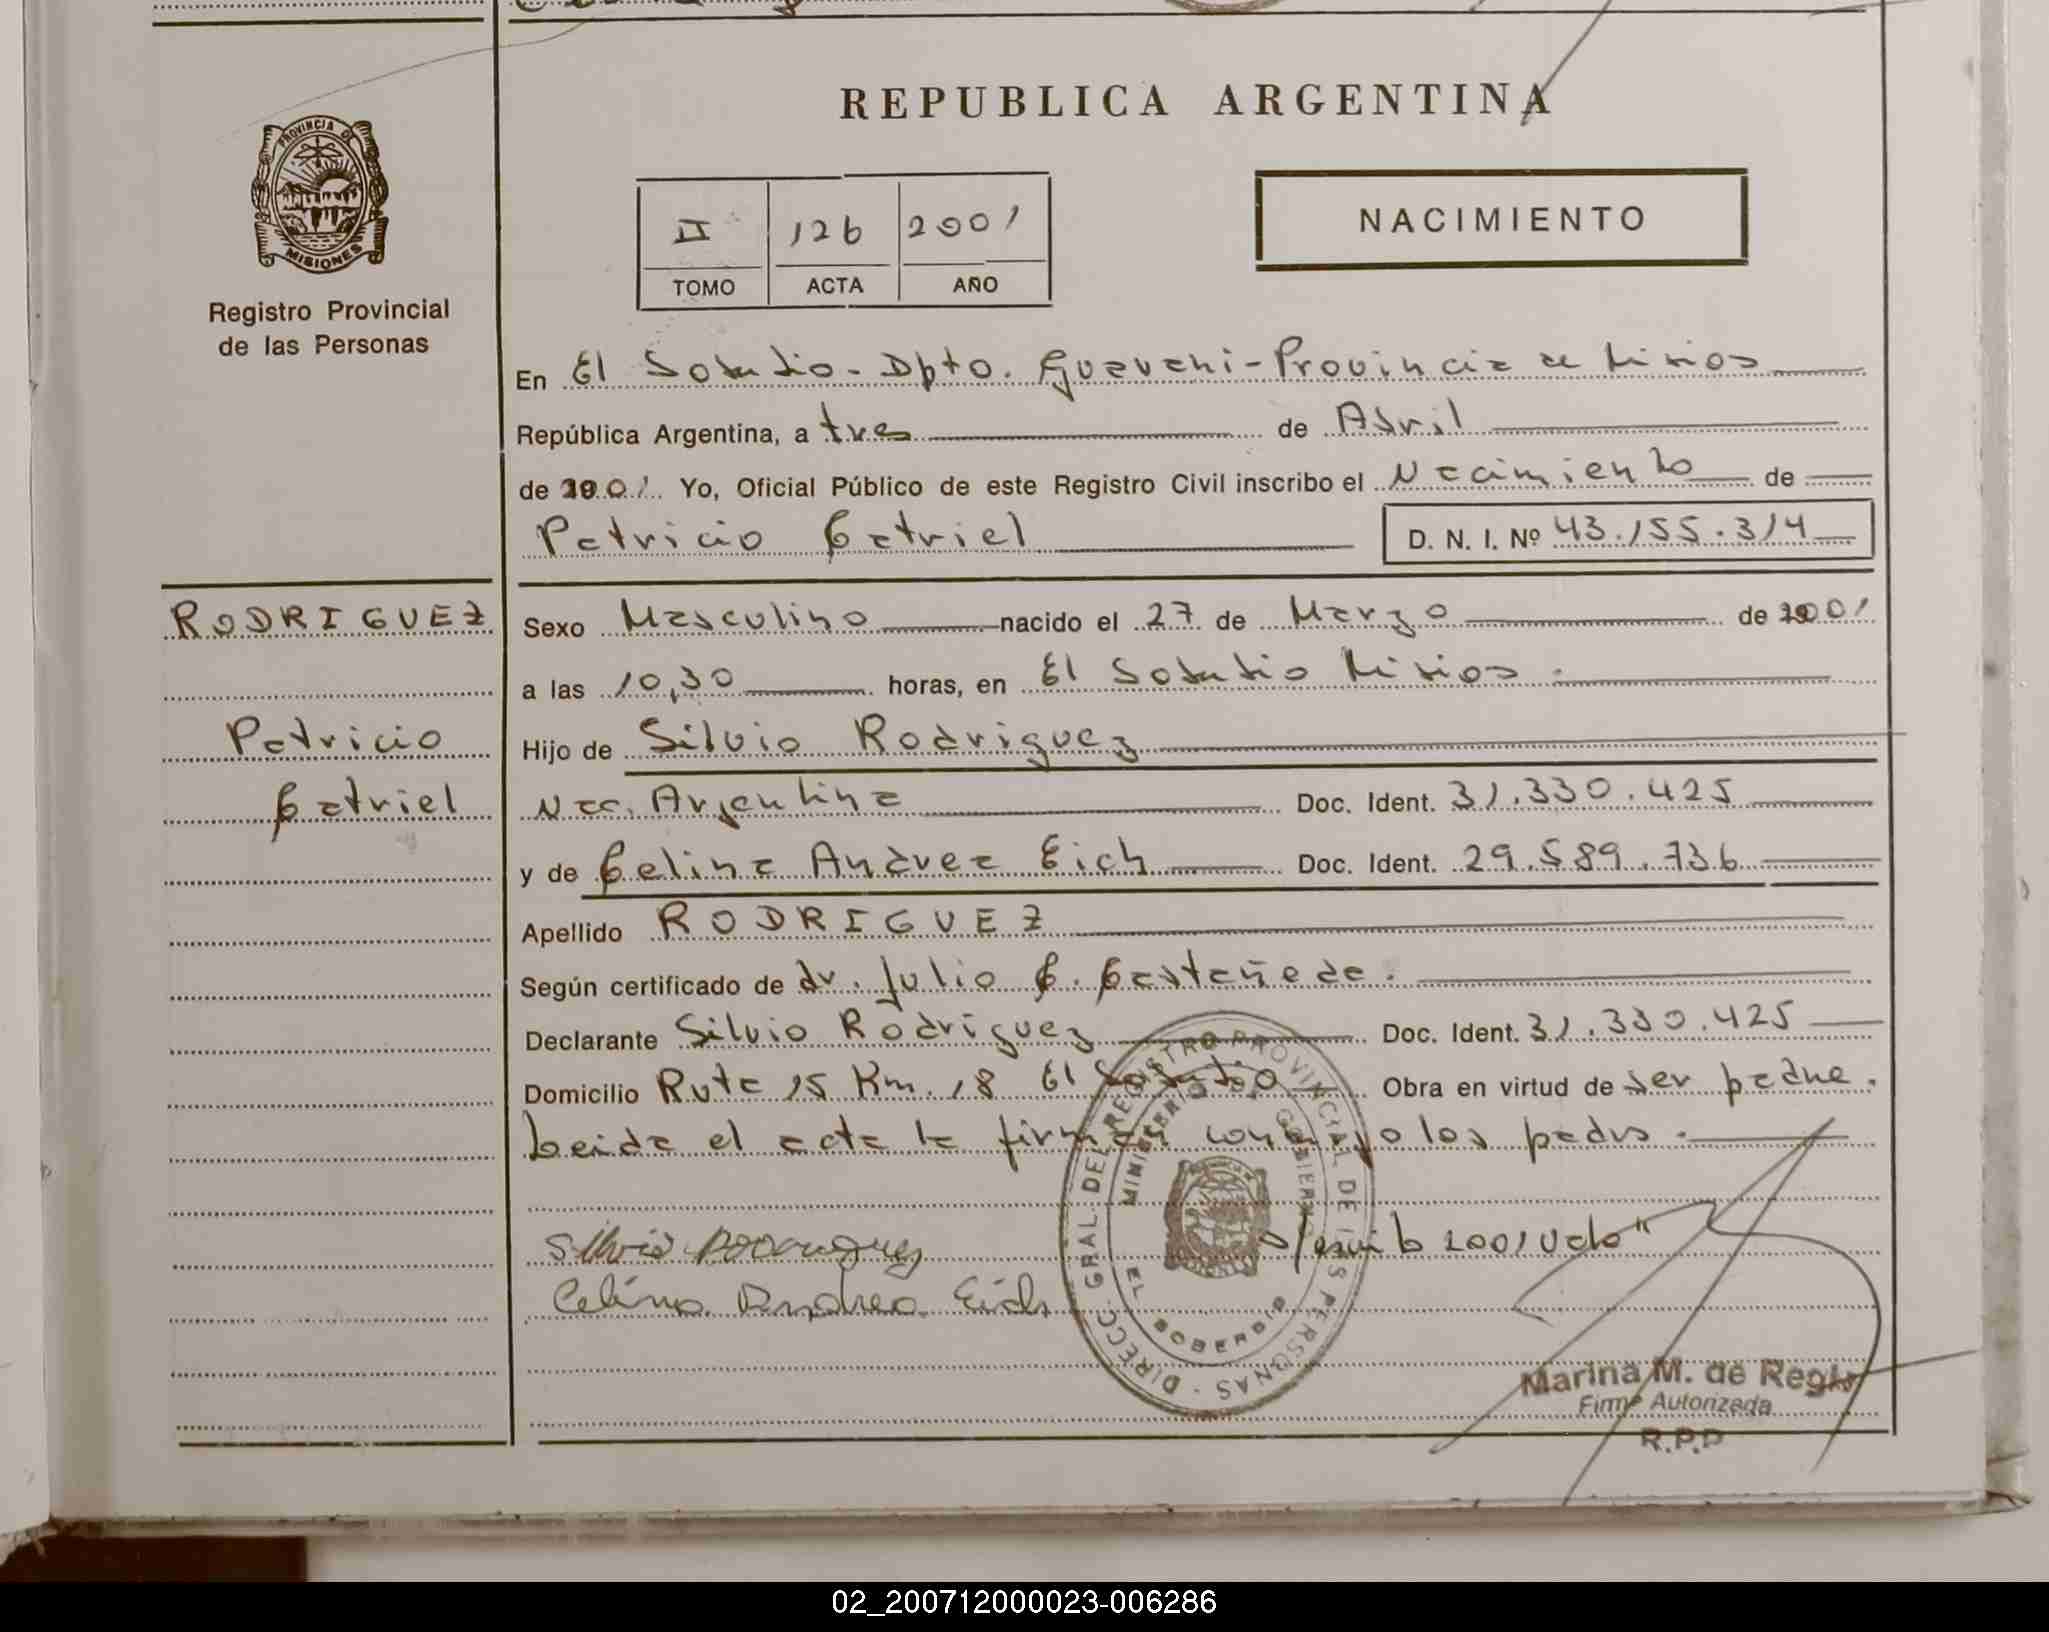 REPUBLICA ARGENTINA
PROVINCIA DE
MISIONES
Registro Provincial
de las Personas
II 126 2001
TOMO ACTA AÑO
NACIMIENTO
En El Soberbio - Dpto. Guarani - Provincia de Misiones
República Argentina, a tres de Abril
de 2001 Yo, Oficial Público de este Registro Civil inscribo el Nacimiento de
Patricio Catriel D. N. I. Nº 43.155.314
RODRIGUEZ
Patricio
Catriel
Sexo Masculino nacido el 27 de Marzo de 2001
a las 10,30 horas, en El Soberbio Misiones.
Hijo de Silvio Rodriguez
Nac. Argentina Doc. Ident. 31.330.425
y de Celina Andrea Eich Doc. Ident. 29.589.736
Apellido RODRIGUEZ
Según certificado de dr. Julio C. Castañeda.
Declarante Silvio Rodriguez Doc. Ident. 31.330.425
Domicilio Ruta 15 Km. 18 El Soberbio Obra en virtud de ser padre.
Leida el acta la firman conmigo los padres.
Silvio Rodriguez
2001 Vale"
Celina Andrea Eich
DIRECC. GRAL. DEL REGISTRO PROVINCIAL DE LAS PERSONAS
MINISTERIO DE GOBIERNO
EL SOBERBIO
Marina M. de Regis
Firma Autorizada
R.P.P
02_200712000023-006286